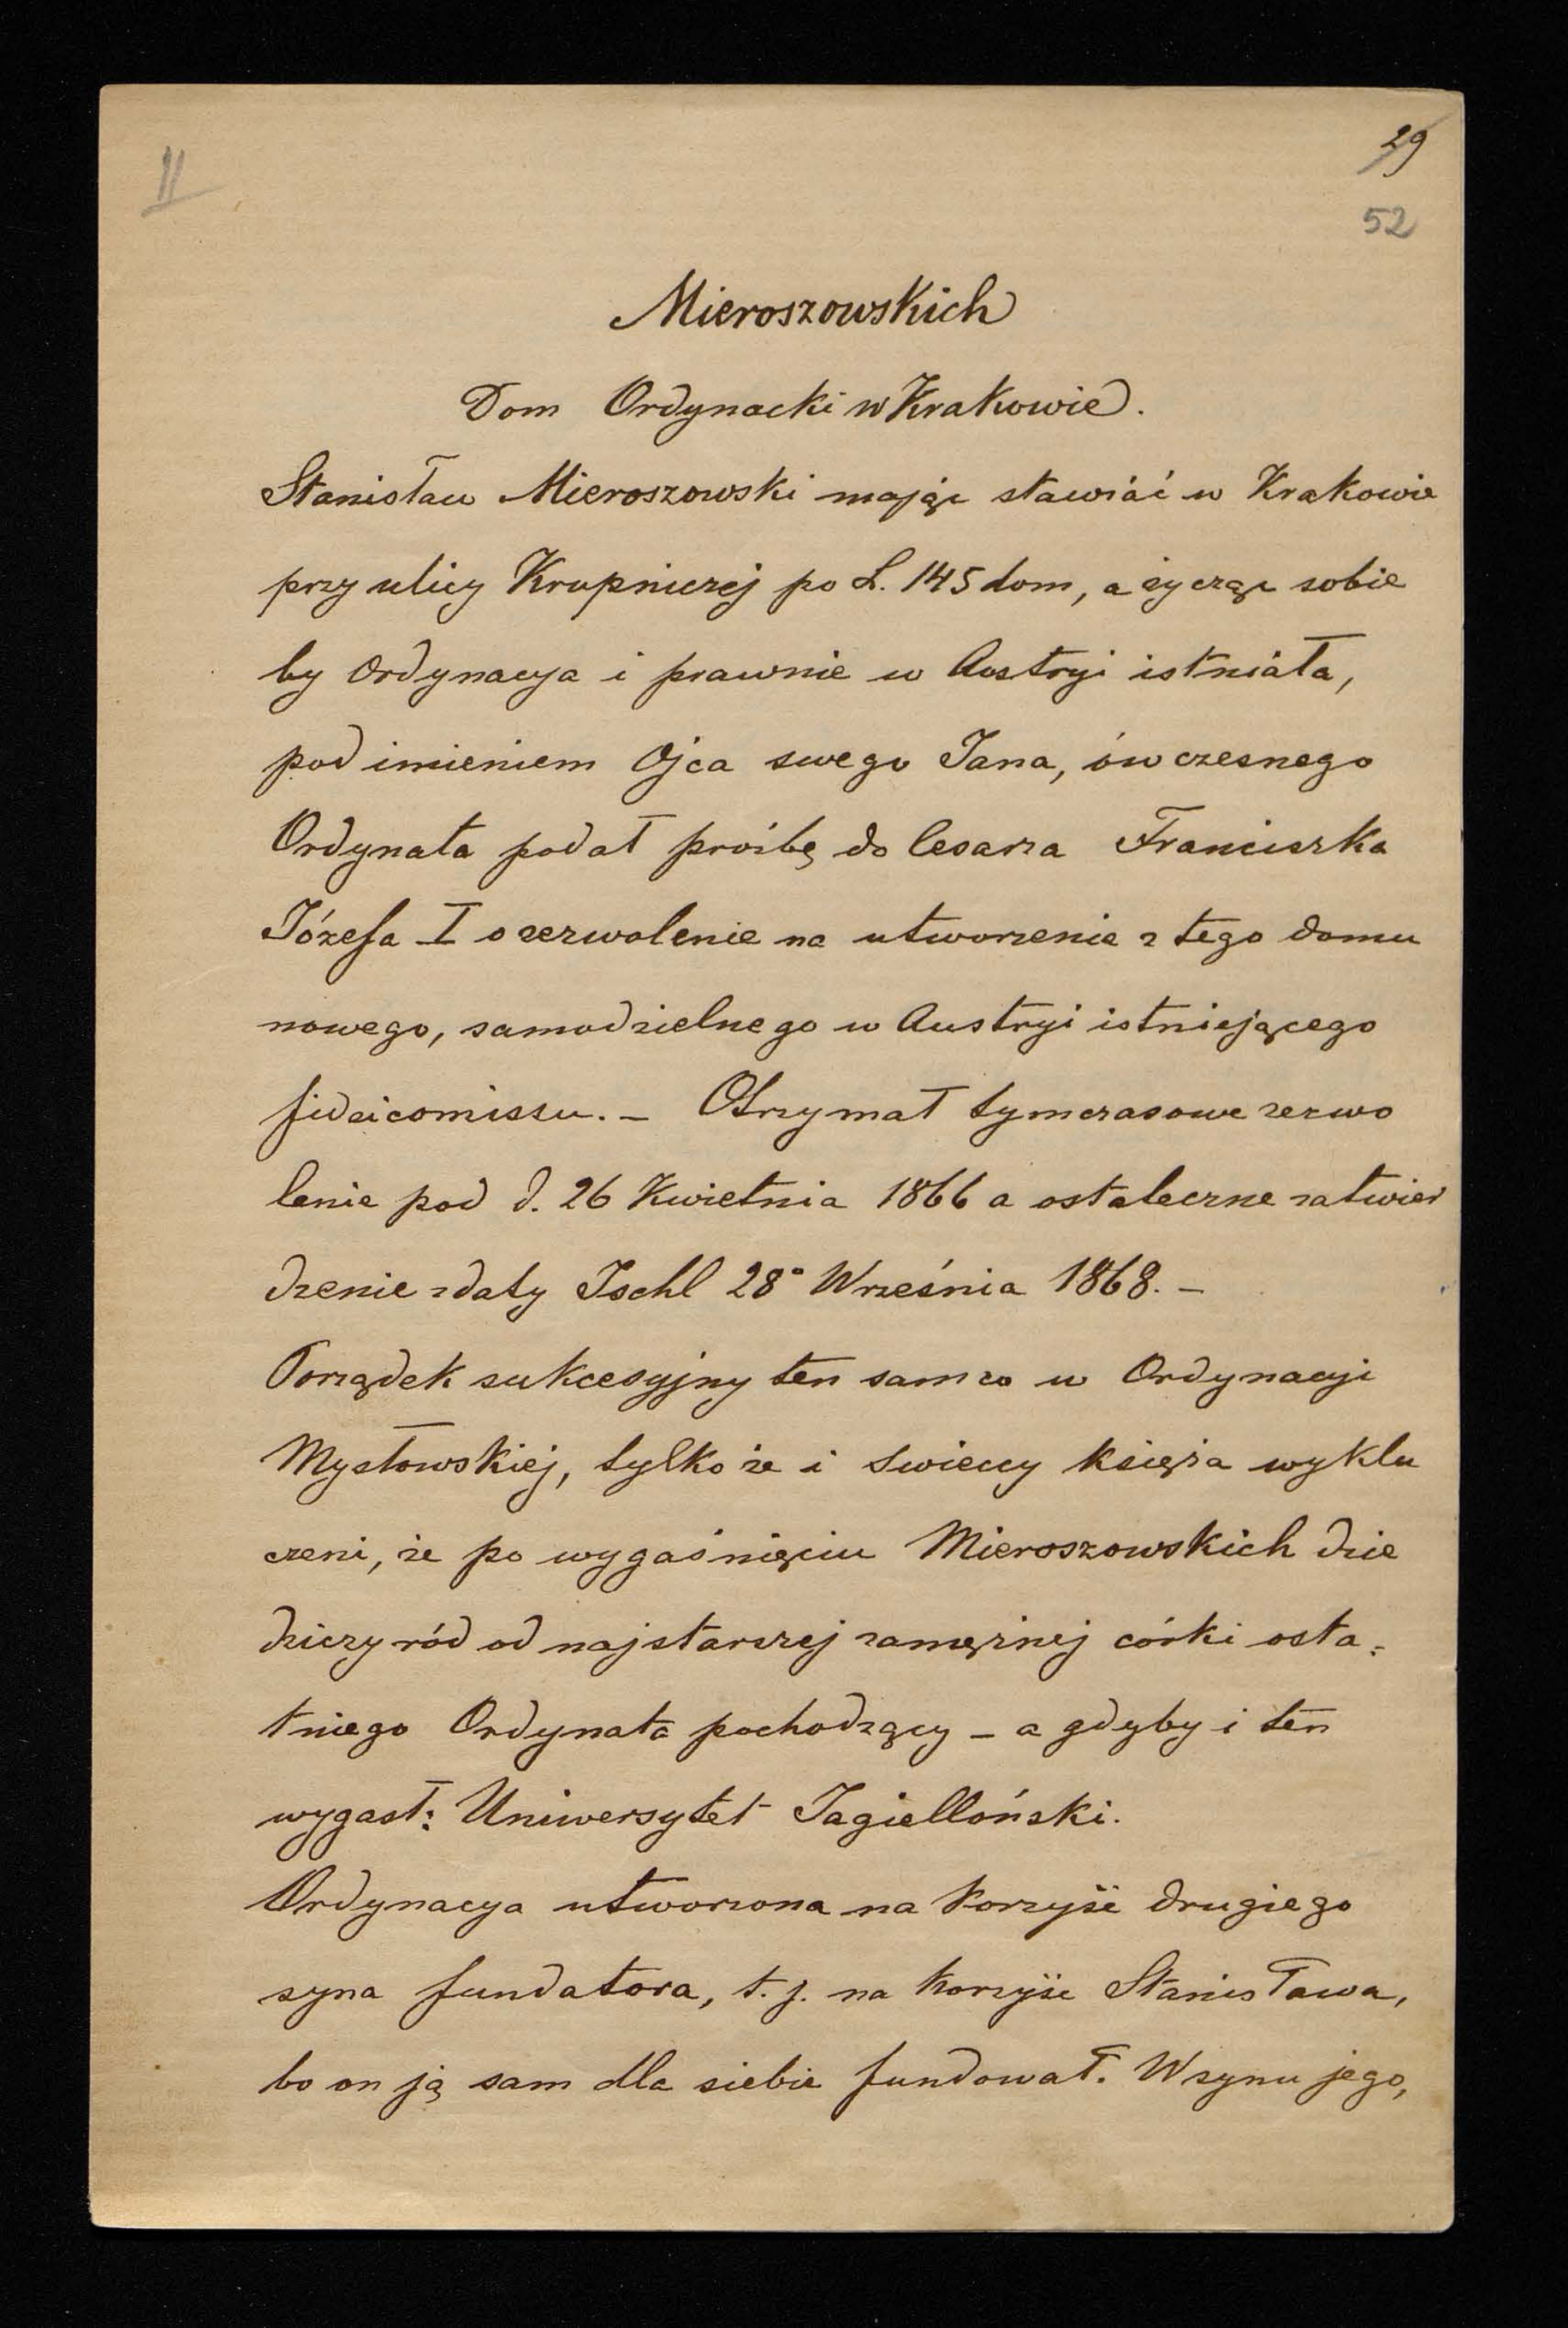 II
29
52
Mieroszowskich
Dom Ordynacki w Krakowie.
Stanisław Mieroszowski mając stawiać w Krakowie
przy ulicy Krupniczej po L. 145 dom, a życząc sobie
by Ordynacya i prawnie w Austryi istniała,
pod imieniem Ojca swego Jana, ówczesnego
Ordynata podał prośbę do Cesarza Franciszka
Józefa I o zezwolenie na utworzenie z tego domu
nowego, samodzielnego w Austryi istniejącego
fideicomissu. – Otrzymał tymczasowe zezwo
lenie pod d. 26 Kwietnia 1866 a ostateczne zatwier
dzenie z daty Ischl 28° Września 1868. –
Porządek sukcesyjny ten sam co w Ordynacyi
Mysłowskiej, tylko że i świeccy księża wyklu
czeni, że po wygaśnięciu Mieroszowskich dzie
dziczy ród od najstarszej zamężnej córki osta=
tniego Ordynata pochodzący – a gdyby i ten
wygasł: Uniwersytet Jagielloński.
Ordynacya utworzona na korzyść drugiego
syna fundatora, t. j. na korzyść Stanisława,
bo on ją sam dla siebie fundował. W synu jego,